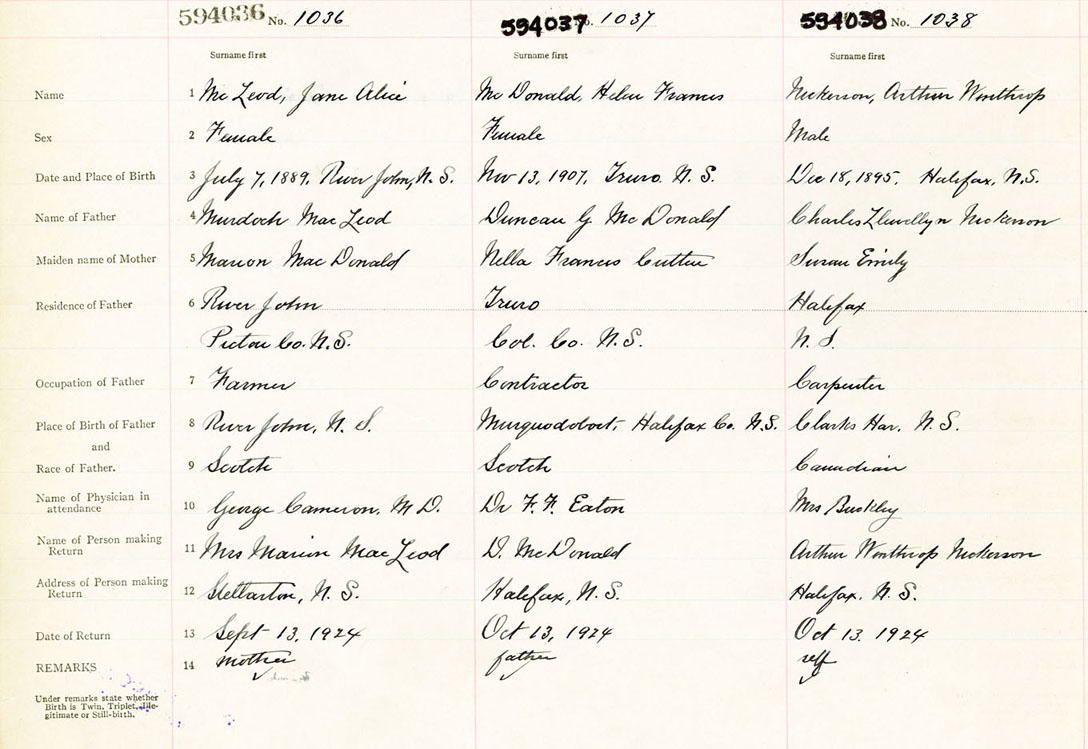 594036 No. 1036 594037 No. 1037 594038 No. 1038
Surname first Surname first Surname first
Name 1 Mc Leod, Jane Alice Mc Donald, Helen Francis Nickerson, Arthur Winthrop
Sex 2 Female Female Male
Date and Place of Birth 3 July 7, 1889, River John, N. S. Nov 13, 1907, Truro N. S. Dec 18, 1895, Halifax, N.S.
Name of Father 4 Murdoch MacLeod Duncan G Mc Donald Charles Llewellyn Nickerson
Maiden name of Mother 5 Marion Mac Donald Nella Francis Cutten Susan Emily
Residence of Father 6 River John Truro Halifax
Pictou Co. N.S. Col. Co. N.S. N. S.
Occupation of Father 7 Farmer Contractor Carpenter
Place of Birth of Father 8 River John, N. S. Musquodoboit, Halifax Co. N.S. Clarks Har. N. S.
and
Race of Father. 9 Scotch Scotch Canadian
Name of Physician in
attendance 10 George Cameron, M D. Dr F. F. Eaton Mrs Buckley
Name of Person making
Return 11 Mrs Marion MacLeod D. McDonald Arthur Winthrop Nickerson
Address of Person making
Return 12 Stellarton, N. S. Halifax, N. S. Halifax, N. S.
Date of Return 13 Sept 13, 1924 Oct 13, 1924 Oct 13. 1924
REMARKS 14 mother father self
Under remarks state whether
Birth is Twin, Triplet, Ille-
gitimate or Still-birth.